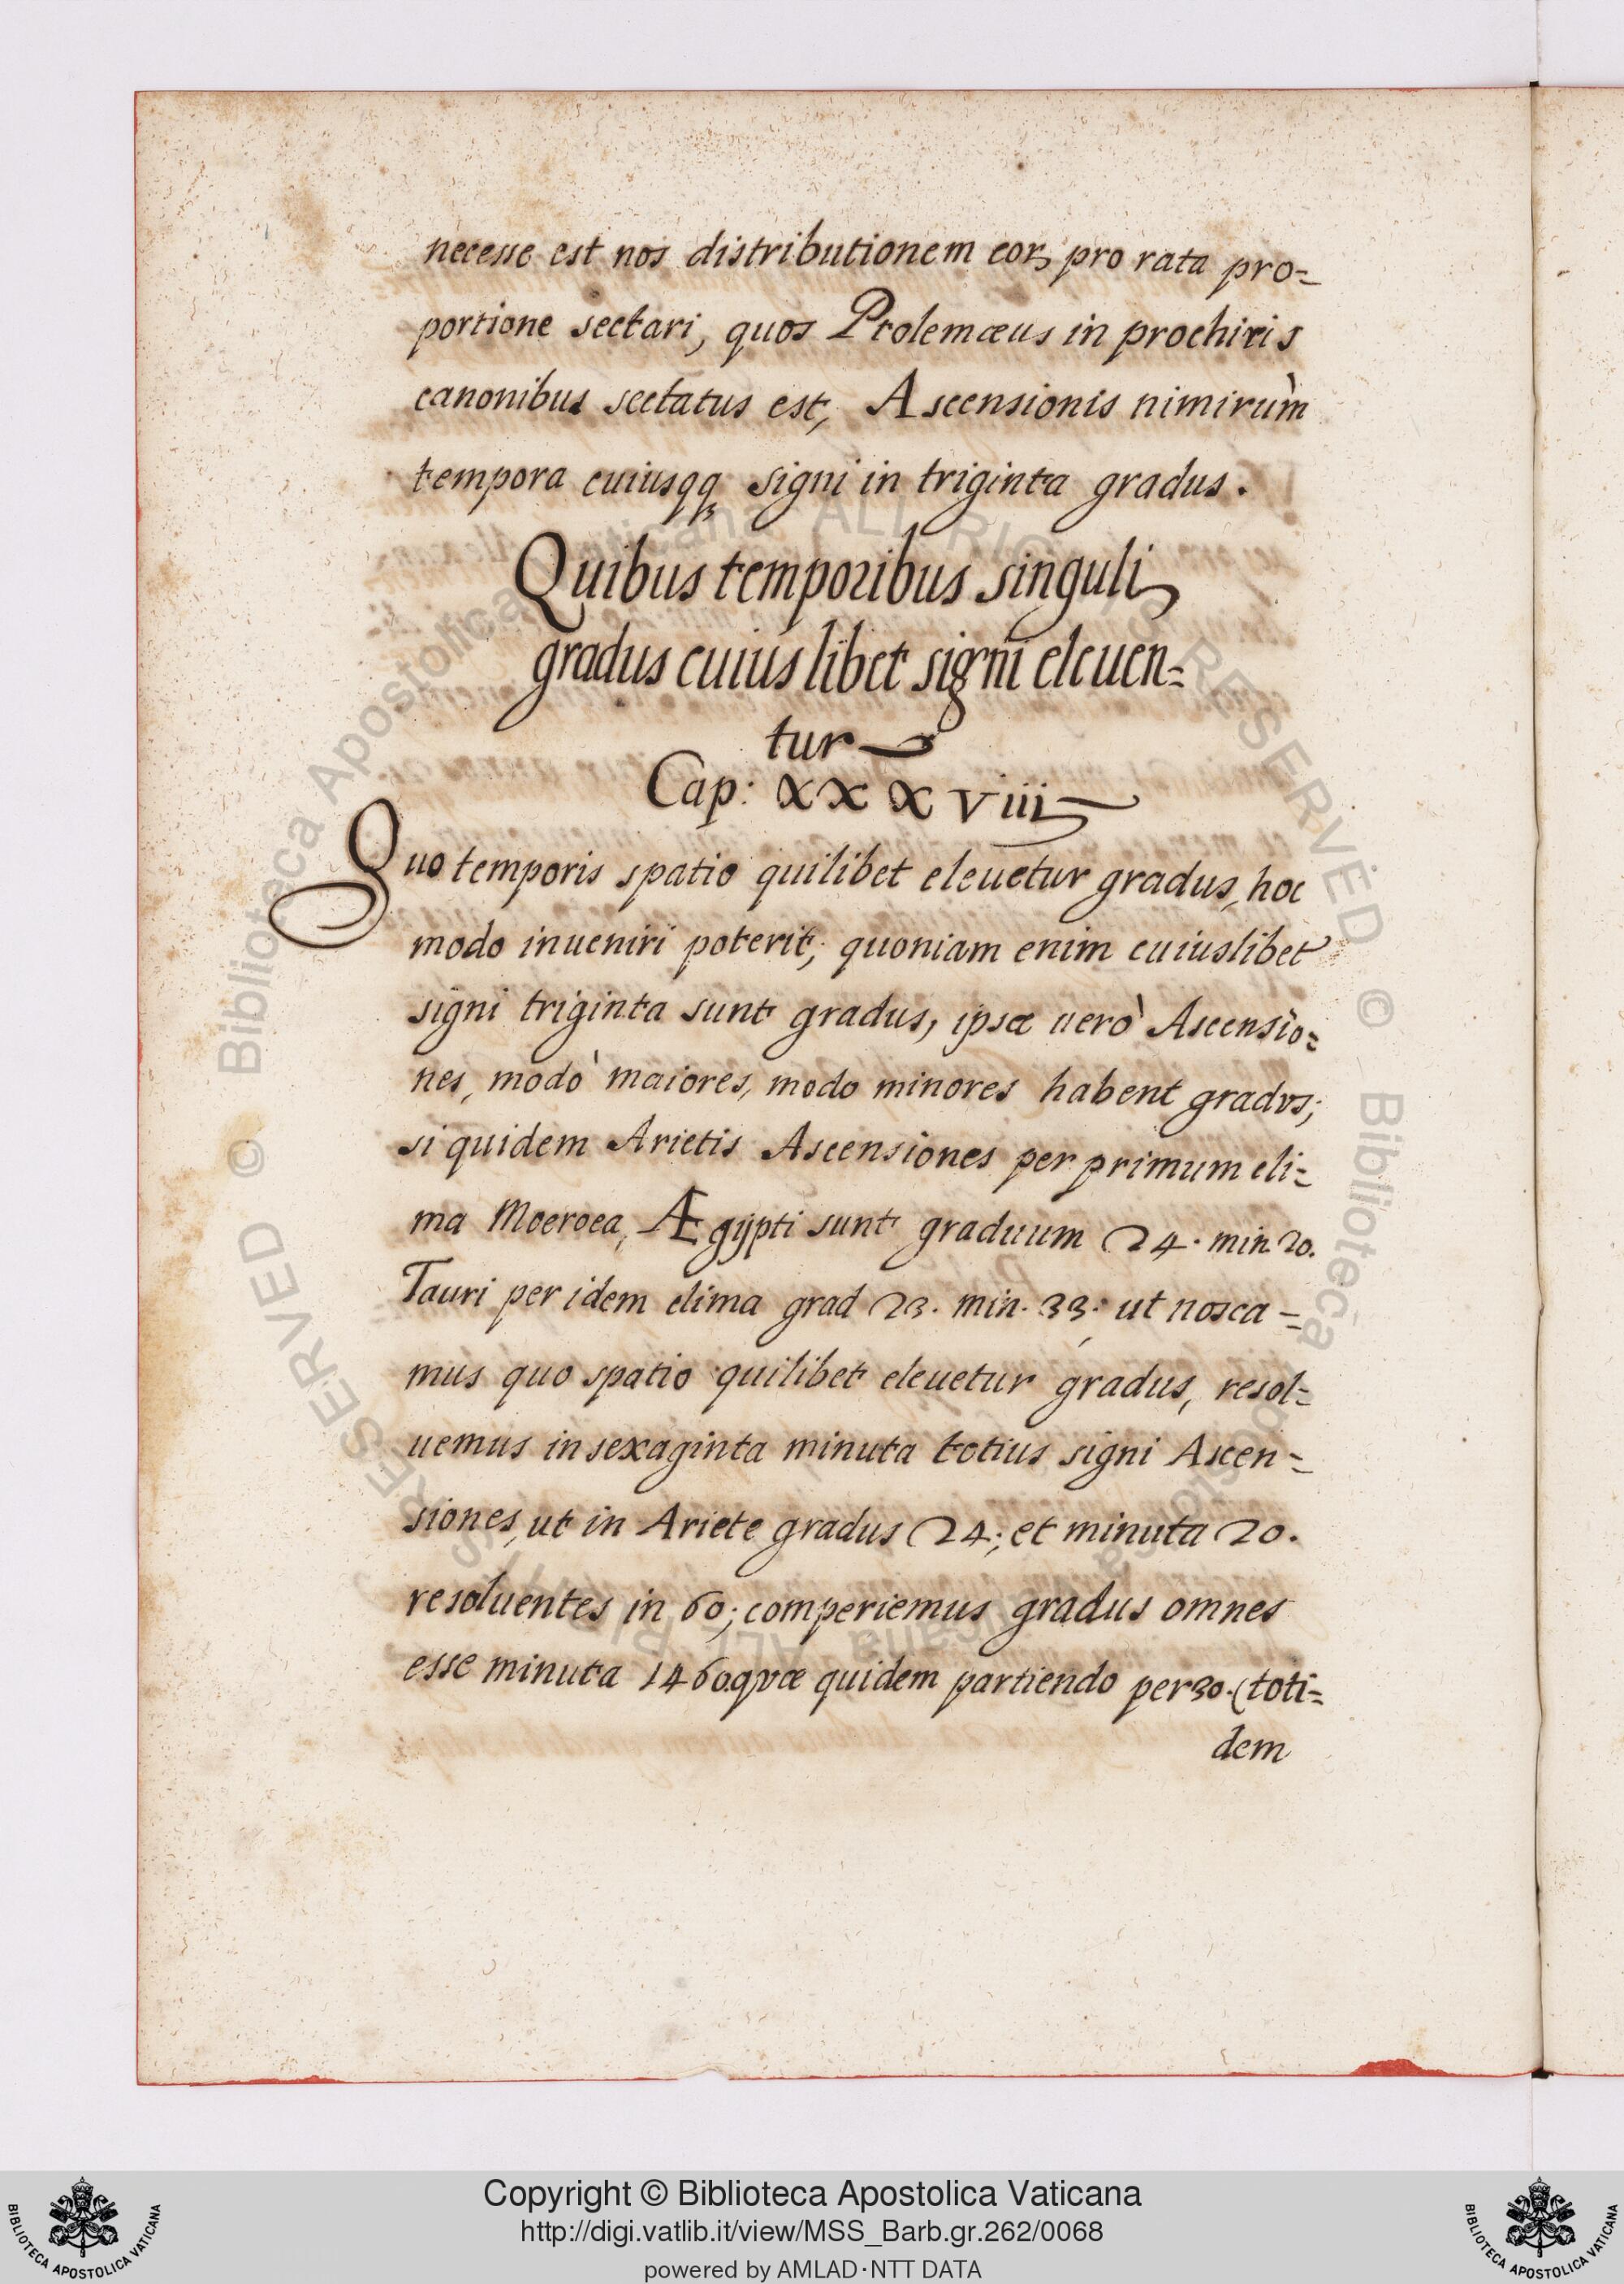 necesse est nos distributionem eoꝝ pro rata pro=
portione sectari, quos Ptolemæus in prochiris
canonibus sectatus est, Ascensionis nimirùm
tempora cuiusqꝫ signi in triginta gradus.
Quibus temporibus singuli
gradus cuius libet signi eleuen=
tur
Cap: XXXViii
Quo temporis spatio quilibet eleuetur gradus, hoc
modo inueniri poterit; quoniam enim cuiuslibet
signi triginta sunt gradus, ipsæ uerò Ascensio=
nes, modò maiores, modo minores habent gradvs;
si quidem Arietis Ascensiones per primum cli=
ma Moeroea, Ægypti sunt graduum 24. min. 20.
Tauri per idem clima grad 23. min. 33; ut nosca=
mus quo spatio quilibet eleuetur gradus, resol=
uemus in sexaginta minuta totius signi Ascen=
siones, ut in Ariete gradus 24; et minuta 20.
resoluentes in 60; comperiemus gradus omnes
esse minuta 1460. qvæ quidem partiendo per 30. (toti=
dem
Copyright © Biblioteca Apostolica Vaticana
http://digi.vatlib.it/view/MSS_Barb.gr.262/0068
powered by AMLAD·NTT DATA
BIBLIOTECA APOSTOLICA VATICANA
BIBLIOTECA APOSTOLICA VATICANA